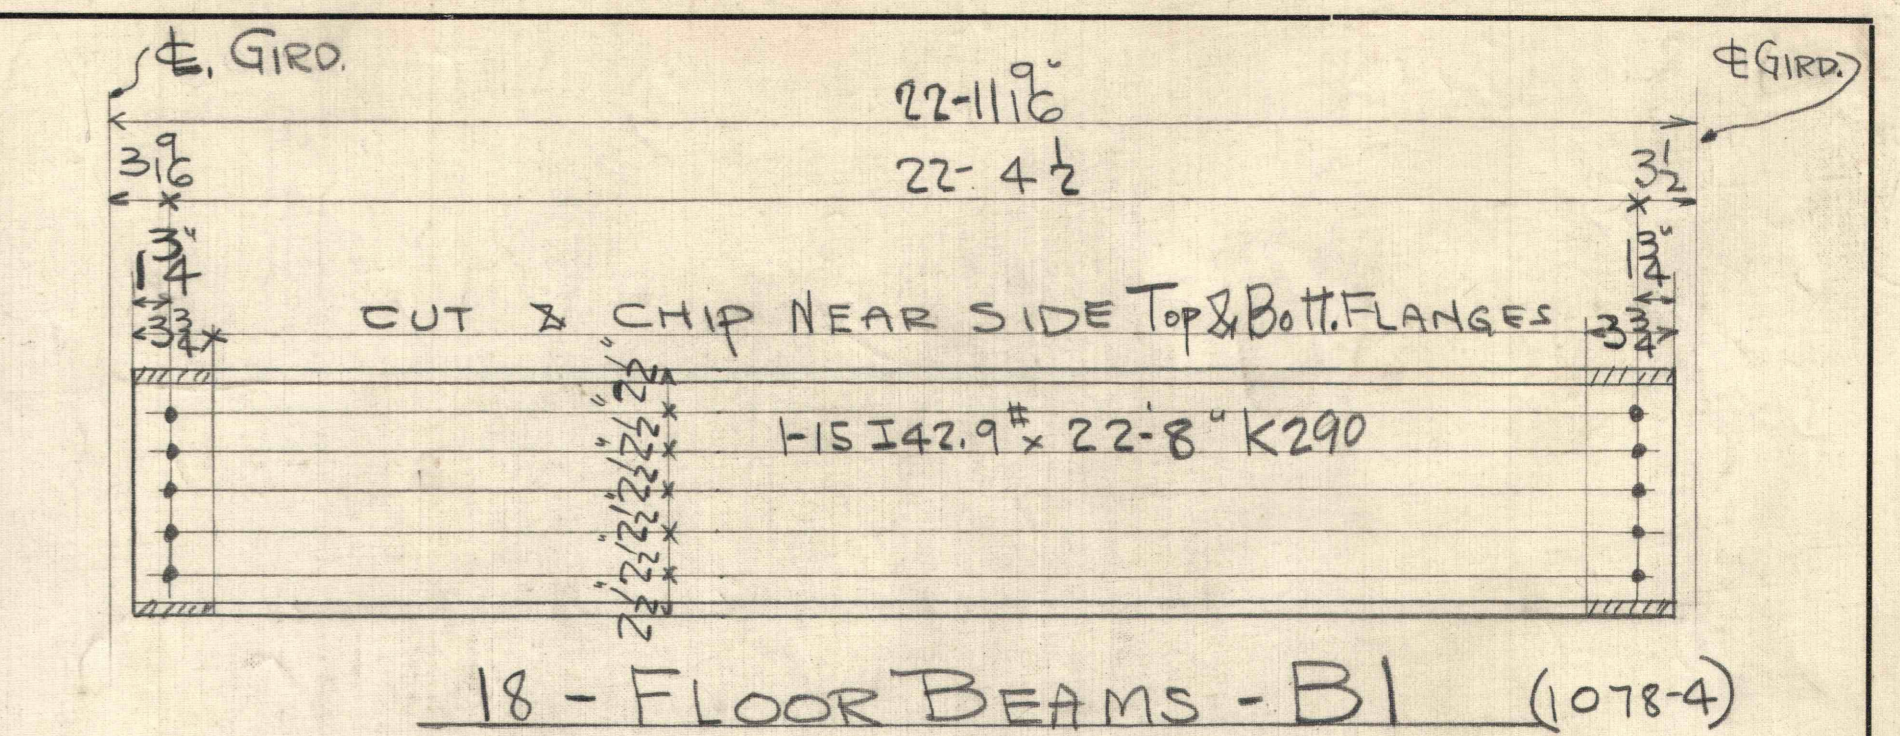 ℄. GIRD.
℄ GIRD.
22-11 9/16"
3 9/16
22- 4 1/2
3 1/2
1 3/4"
1 3/4"
3 3/4
CUT & CHIP NEAR SIDE Top & Bott. FLANGES
3 3/4
2 1/2"
2 1/2"
2 1/2"
2 1/2"
2 1/2"
2 1/2"
1-15 I 42.9# x 22'-8" K290
18 - FLOOR BEAMS - B1 (1078-4)